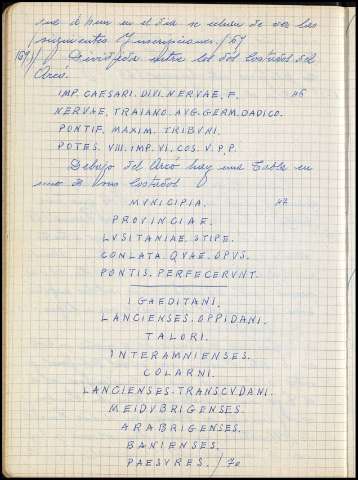 que de buen en el dia se echan de ver las
siguientes Ynscripciones. / 69
69// Dividida entre los dos costados del
Arcó.
IMP. CAESARI. DIVI. NERVAE. F. 46
NERVAE, TRAIANO. AVG. GERM. DADICO.
PONTIF. MAXIM. TRIBVNI.
POTES. VIII. IMP. VI. COS. V. P.P.
Debajo del Arcó hay una Tabla en
uno de sus Costados
MVNICIPIA. 47
PROVINCIAE.
LVSITANIAE. STIPE.
CONLATA. QVAE. OPVS.
PONTIS. PERFECERVNT.
IGAEDITANI.
LANCIENSES. OPPIDANI.
TALORI.
INTERAMNIENSES.
COLARNI.
LANCIENSES. TRANSCVDANI.
MEIDVBRIGENSES.
ARABRIGENSES.
BANIENSES.
PAESVRES. / 70